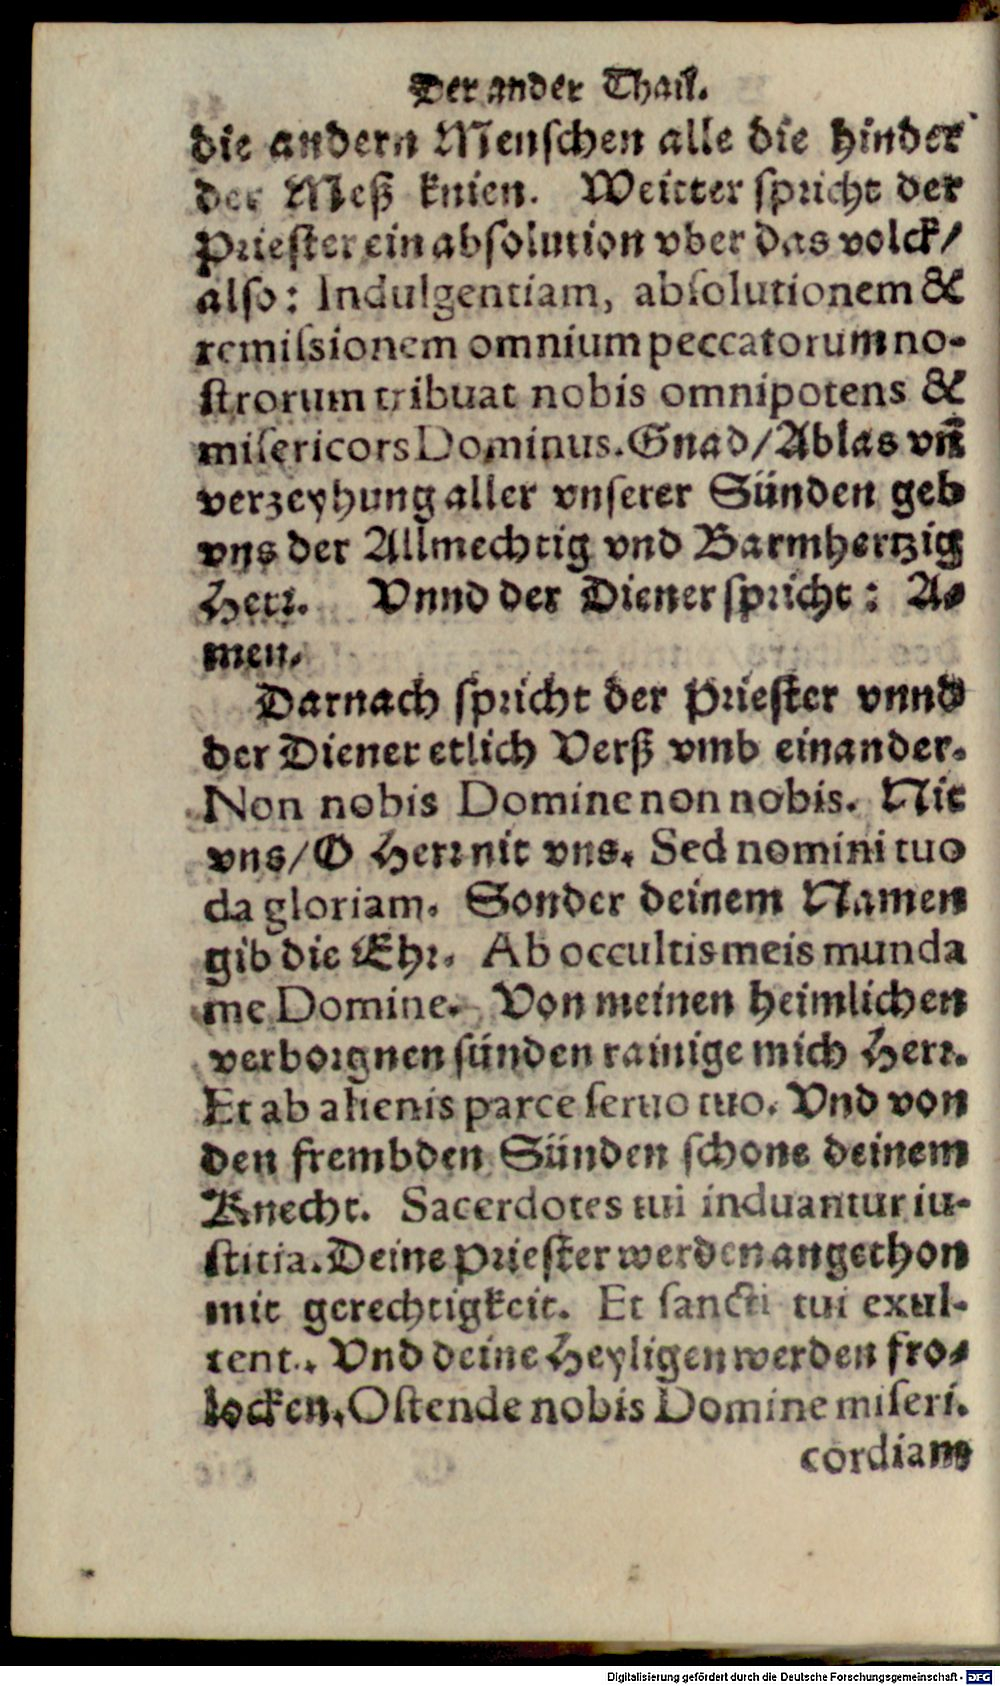 Der ander Thail.
die andern Menschen alle die hinder
der Meß knien. Weitter spricht der
Priester ein absolution vber das volck/
also: Indulgentiam, absolutionem &
remiſsionem omnium peccatorum no-
ſtrorum tribuat nobis omnipotens &
miſericors Dominus. Gnad/ Ablas vñ
verzeyhung aller vnserer Sünden geb
vns der Allmechtig vnd Barmhertzig
Herr. Vnnd der Diener spricht: A-
men.
Darnach spricht der Priester vnnd
der Diener etlich Verß vmb einander.
Non nobis Domine non nobis. Nit
vns/ O Herr nit vns. Sed nomini tuo
da gloriam. Sonder deinem Namen
gib die Ehr. Ab occultis meis munda
me Domine. Von meinen heimlichen
verborgnen sünden rainige mich Herr.
Et ab alienis parce ſeruo tuo. Vnd von
den frembden Sünden schone deinem
Knecht. Sacerdotes tui induantur iu-
ſtitia. Deine Priester werden angethon
mit gerechtigkeit. Et ſancti tui exul-
tent. Vnd deine Heyligen werden fro-
locken. Oſtende nobis Domine miſeri.
cordiam
Digitalisierung gefördert durch die Deutsche Forschungsgemeinschaft - DFG